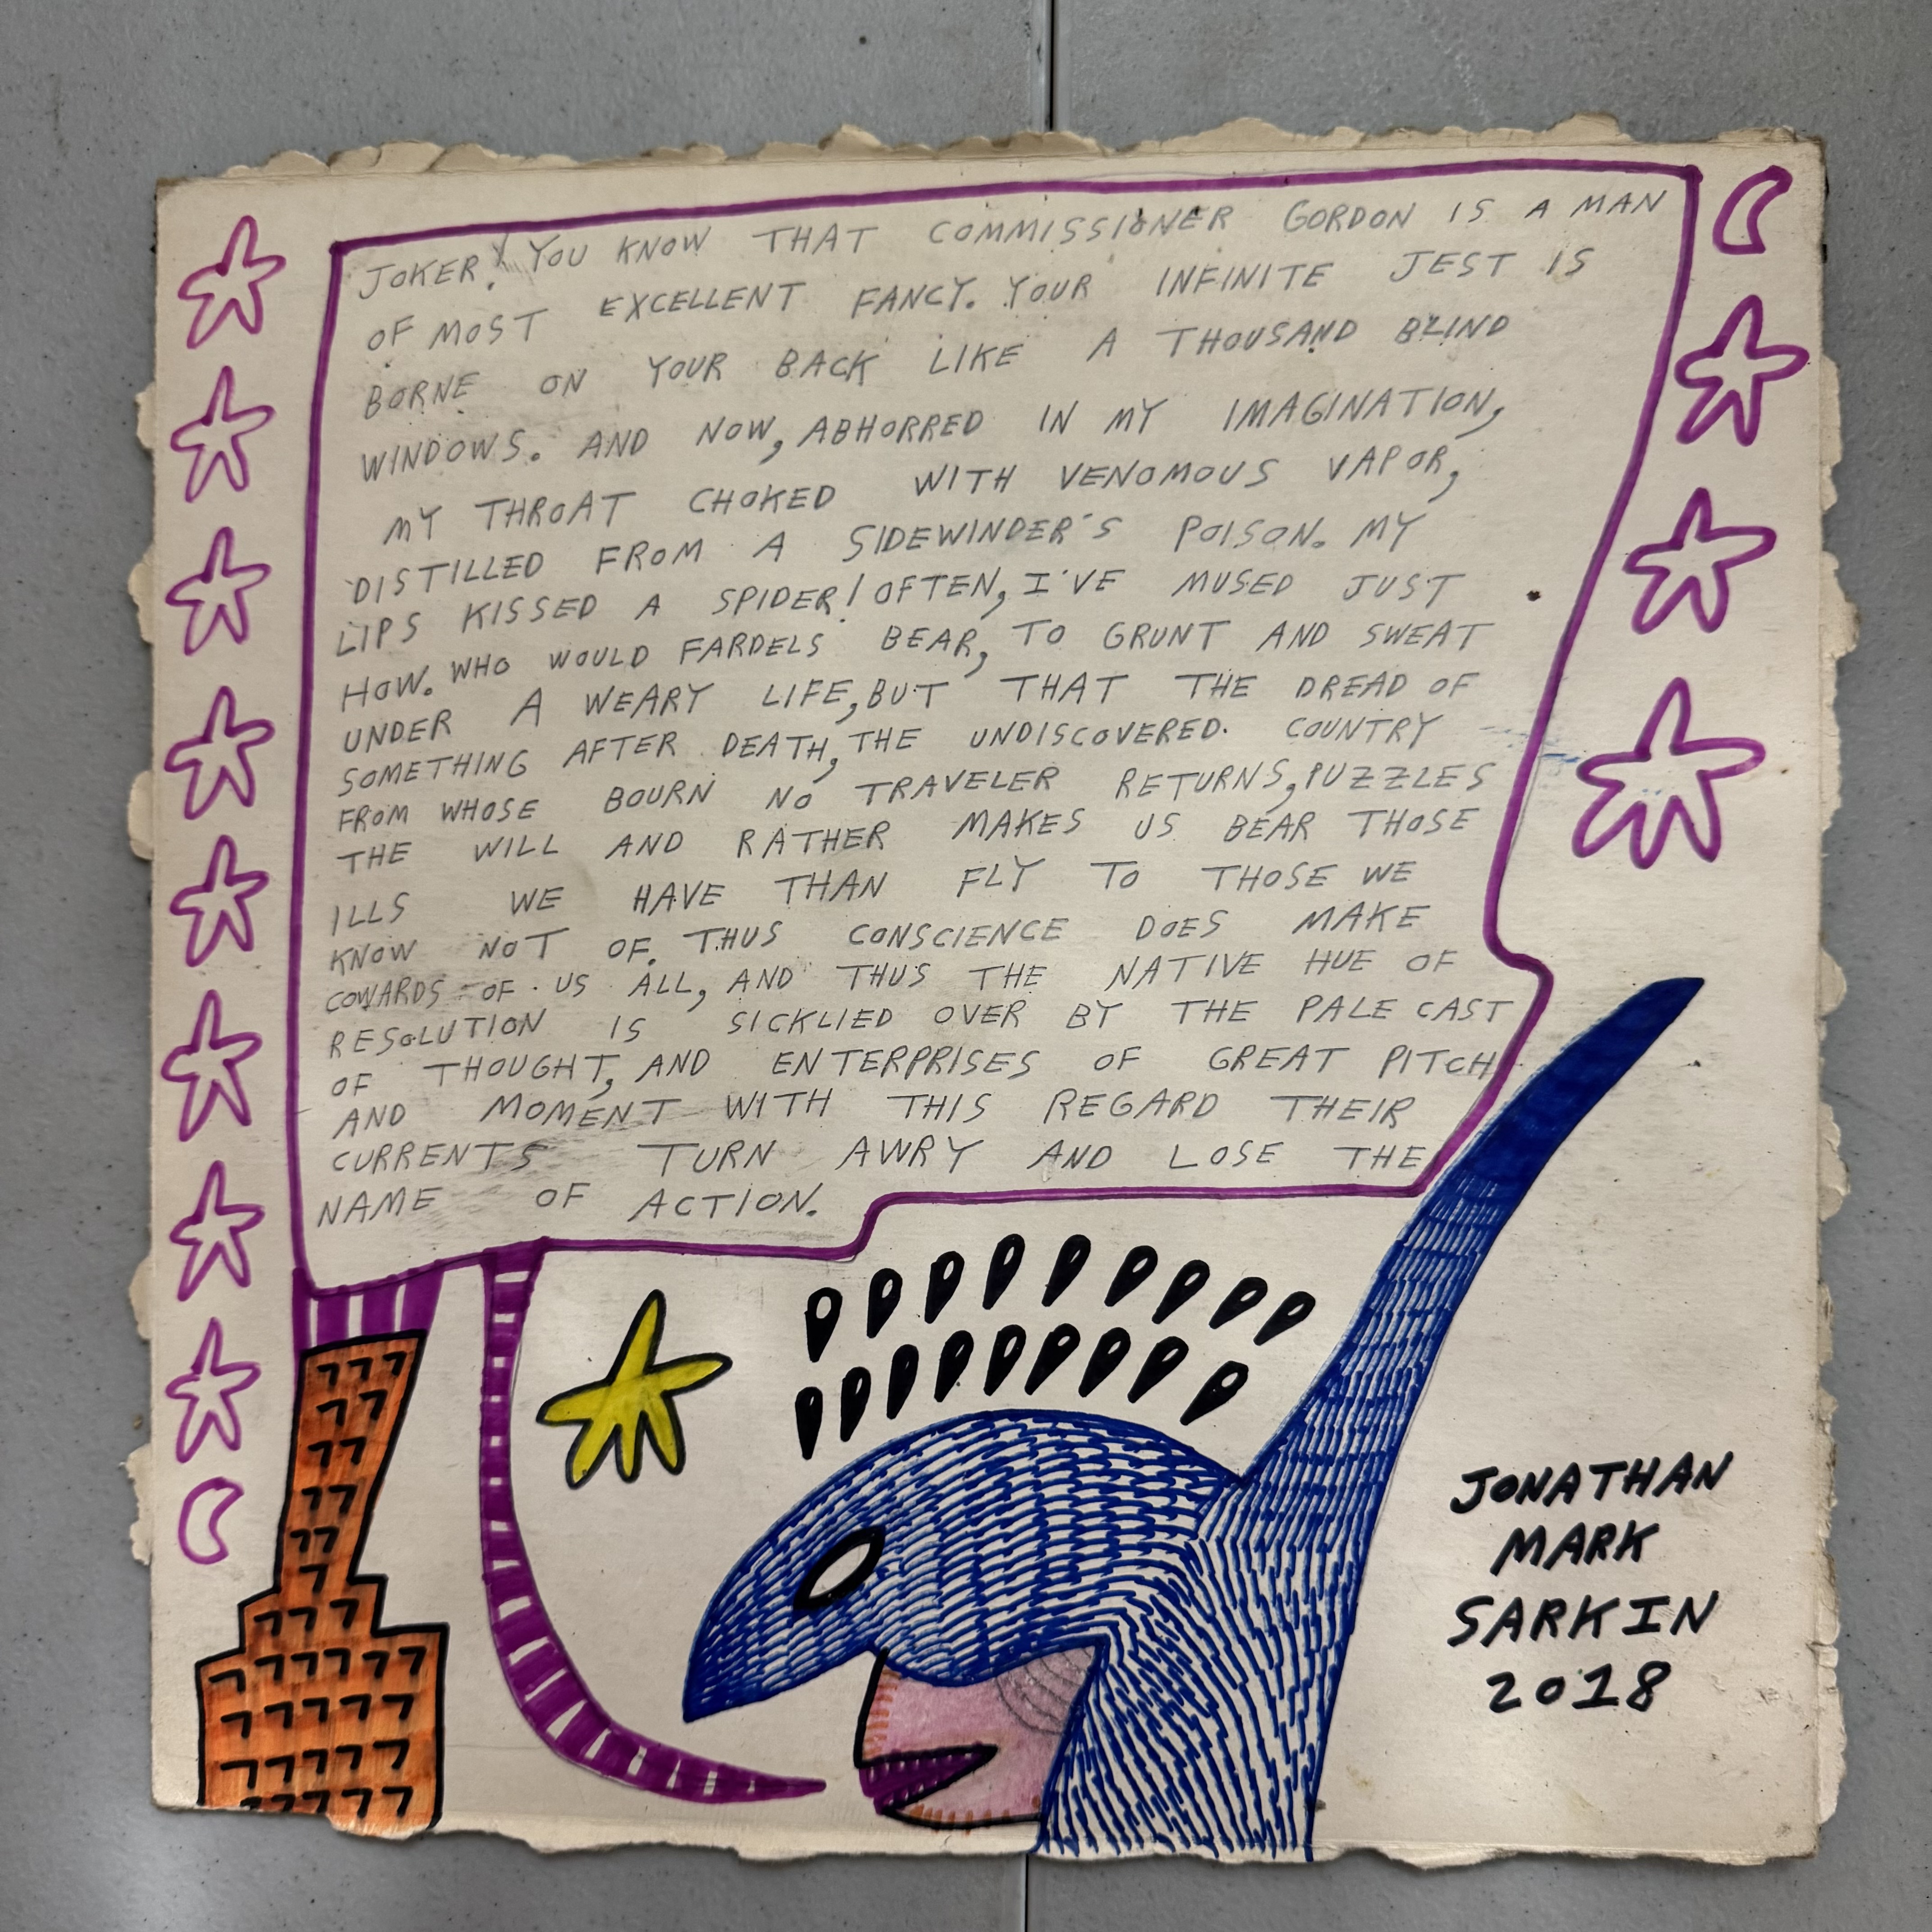 JOKER! YOU KNOW THAT COMMISSIONER GORDON IS A MAN
OF MOST EXCELLENT FANCY. YOUR INFINITE JEST IS
BORNE ON YOUR BACK LIKE A THOUSAND BLIND
WINDOWS. AND NOW, ABHORRED IN MY IMAGINATION,
MY THROAT CHOKED WITH VENOMOUS VAPOR,
DISTILLED FROM A SIDEWINDER'S POISON. MY
LIPS KISSED A SPIDER! OFTEN, I'VE MUSED JUST
HOW. WHO WOULD FARDELS BEAR, TO GRUNT AND SWEAT
UNDER A WEARY LIFE, BUT THAT THE DREAD OF
SOMETHING AFTER DEATH, THE UNDISCOVERED COUNTRY
FROM WHOSE BOURN NO TRAVELER RETURNS, PUZZLES
THE WILL AND RATHER MAKES US BEAR THOSE
ILLS WE HAVE THAN FLY TO THOSE WE
KNOW NOT OF. THUS CONSCIENCE DOES MAKE
COWARDS OF US ALL, AND THUS THE NATIVE HUE OF
RESOLUTION IS SICKLIED OVER BY THE PALE CAST
OF THOUGHT, AND ENTERPRISES OF GREAT PITCH
AND MOMENT WITH THIS REGARD THEIR
CURRENTS TURN AWRY AND LOSE THE
NAME OF ACTION.
JONATHAN
MARK
SARKIN
2018